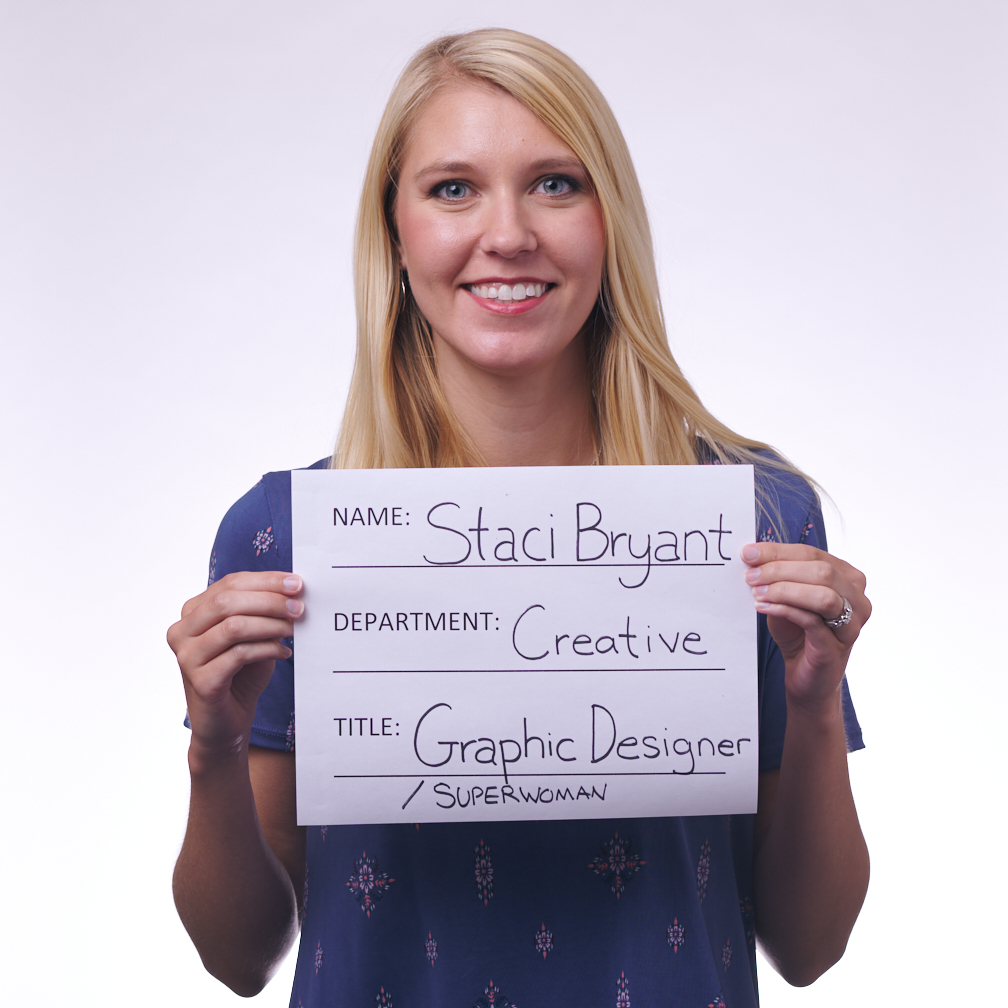 NAME: Staci Bryant
DEPARTMENT: Creative
TITLE: Graphic Designer
/ SUPERWOMAN